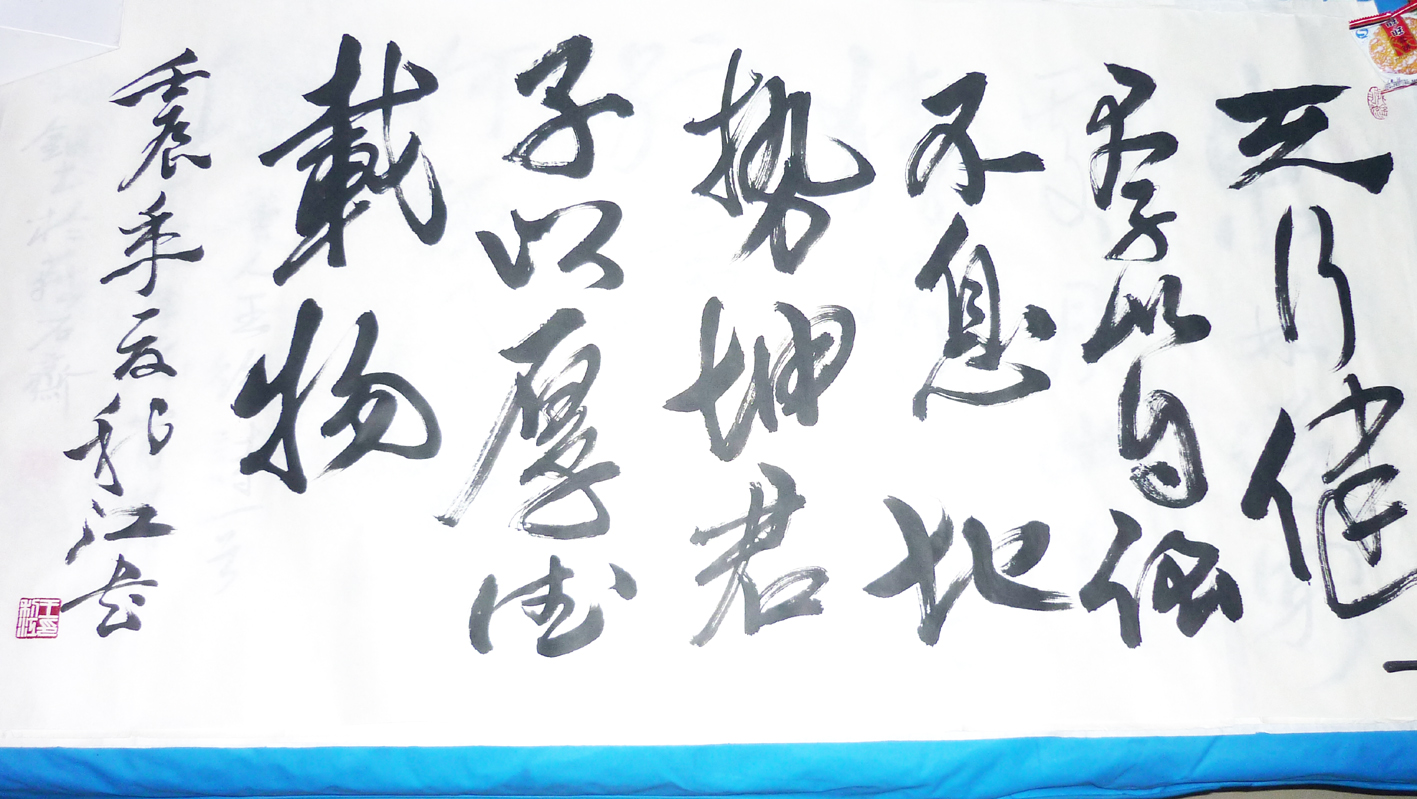 天行健
君子以自强
不息 地
势坤君
子以厚德
載物
壬辰年夏利江书